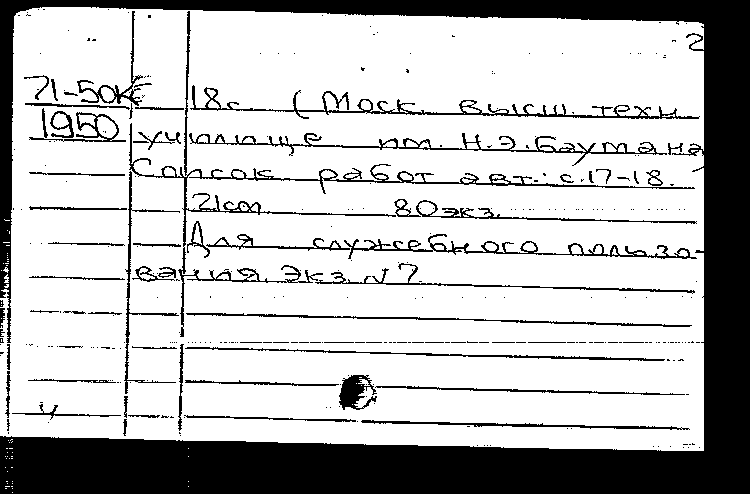 2
71-50К 18с (Моск. высш. техн
1950 училище им. Н.Э.Баумана)
Список работ авт.: с.17-18.
21cm 80экз.
Для служебного пользо-
вания. Экз. N 7